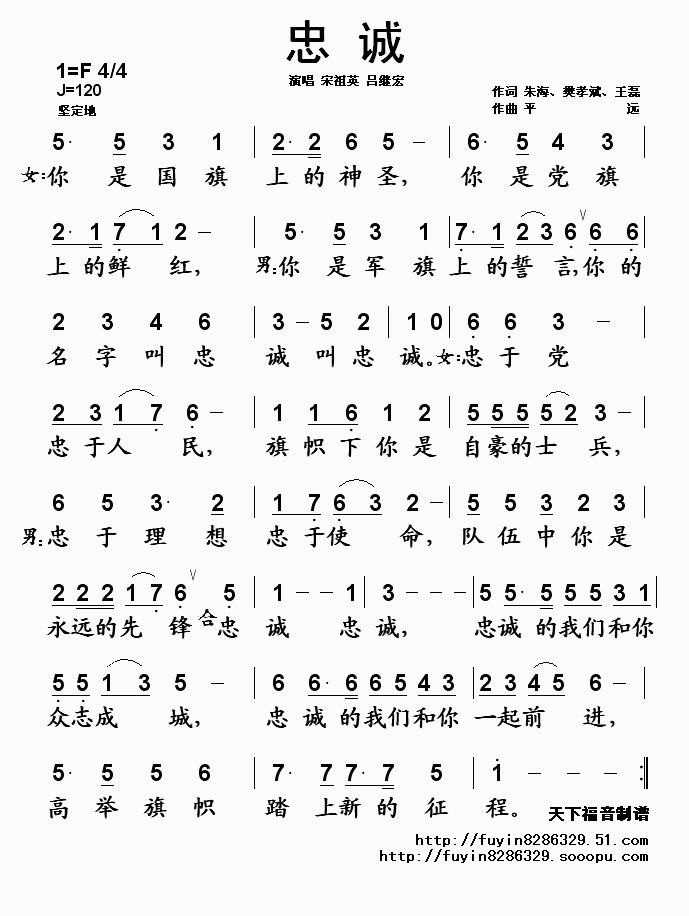 忠 诚
1=F 4/4
J=120
坚定地
演唱 宋祖英 吕继宏
作词 朱海、樊孝斌、王磊
作曲 平 远
5· 5 3 1 | 2· 2 6 5 – | 6· 5 4 3 |
女:你 是 国 旗 上 的 神 圣, 你 是 党 旗
2· 1 7 1 2 – | 5· 5 3 1 | 7· 1 2 3 6 ∨ 6 6 |
上 的 鲜 红, 男:你 是 军 旗 上 的 誓 言,你 的
2 3 4 6 | 3 – 5 2 | 1 0 | 6 6 3 – |
名 字 叫 忠 诚 叫 忠 诚。女:忠 于 党
2 3 1 7 6 – | 1 1 6 1 2 | 5 5 5 5 2 3 – |
忠 于 人 民, 旗 帜 下 你 是 自 豪 的 士 兵,
6 5 3· 2 | 1 7 6 3 2 – | 5 5 3 2 3 |
男:忠 于 理 想 忠 于 使 命, 队 伍 中 你 是
2 2 2 1 7 6 ∨ 5 | 1 – – 1 | 3 – – – | 5 5· 5 5 5 3 1 |
永 远 的 先 锋 合 忠 诚 忠 诚, 忠 诚 的 我 们 和 你
5 5 1 3 5 – | 6 6· 6 6 6 4 3 | 2 3 4 5 6 – |
众 志 成 城, 忠 诚 的 我 们 和 你 一 起 前 进,
5· 5 5 6 | 7· 7 7· 7 5 | 1 – – – :‖
高 举 旗 帜 踏 上 新 的 征 程。
天下福音制谱
http://fuyin8286329.51.com
http://fuyin8286329.sooopu.com